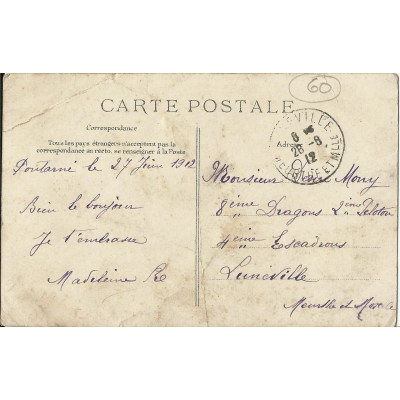 68
CARTE POSTALE
Correspondance
Tous les pays étrangers n'acceptent pas la
correspondance au recto, se renseigner à la Poste
Adresse
le 27 Juin 1912
Bien le bonjour
Je t'embrasse
Madeleine
Monsieur
8ème Dragons 2ème Peloton
4ème Escadrons
Lunéville
Meurthe et Moselle